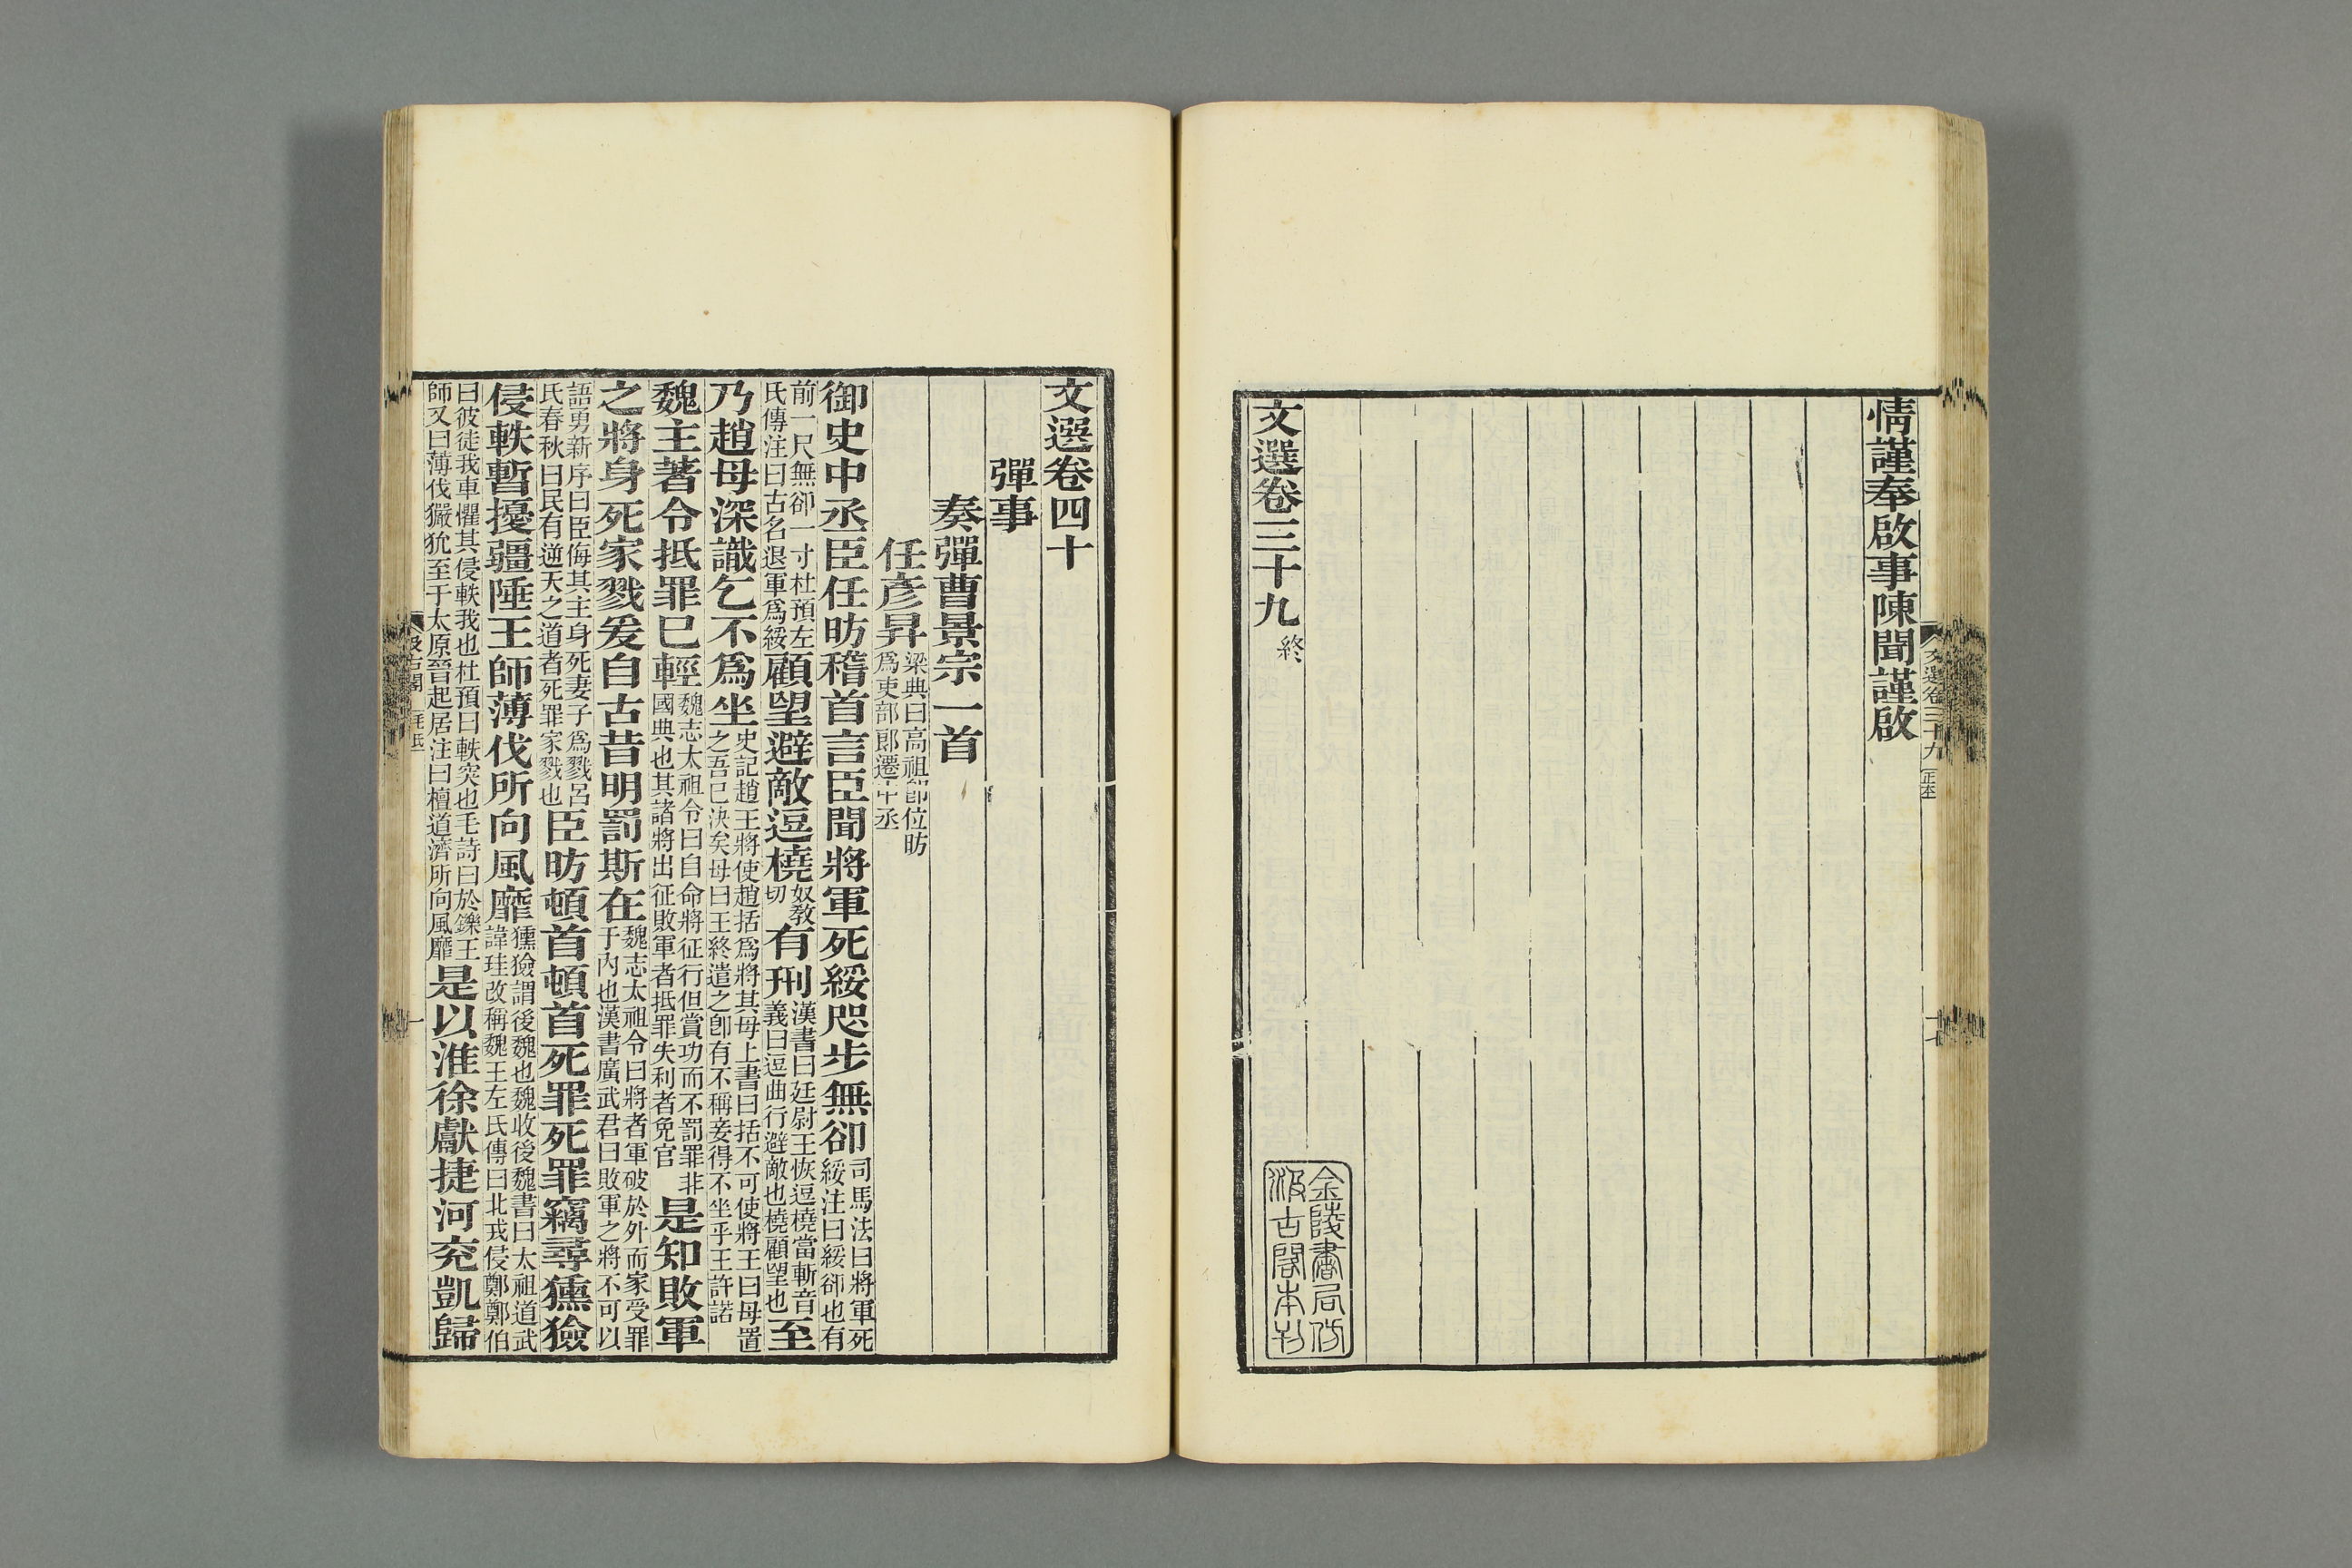 情謹奉啟事陳聞謹啟
文選卷三十九 終
金陵書局仿
汲古閣本刊
文選卷三十九
文選卷四十
彈事
奏彈曹景宗一首
任彥昇 梁典曰高祖卽位昉 爲吏部郞遷中丞
御史中丞臣任昉稽首言臣聞將軍死綏咫步無卻 司馬法曰將軍死 綏注曰綏卻也有
前一尺無卻一寸杜預左 氏傳注曰古名退軍爲綏 顧望避敵逗橈 奴敎 切 有刑 漢書曰廷尉王恢逗橈當斬音 義曰逗曲行避敵也橈顧望也 至
乃趙母深識乞不爲坐 史記趙王將使趙括爲將其母上書曰括不可使將王曰母置 之吾已決矣母曰王終遣之卽有不稱妾得不坐乎王許諾
魏主著令抵罪已輕 魏志太祖令曰自命將征行但賞功而不罰罪非 國典也其諸將出征敗軍者抵罪失利者免官 是知敗軍
之將身死家戮爰自古昔明罰斯在 魏志太祖令曰將者軍破於外而家受罪 于內也漢書廣武君曰敗軍之將不可以
語勇新序曰臣侮其主身死妻子爲戮呂 氏春秋曰民有逆天之道者死罪家戮也 臣昉頓首頓首死罪死罪竊尋獯獫
侵軼暫擾疆陲王師薄伐所向風靡 獯獫謂後魏也魏收後魏書曰太祖道武 諱珪改稱魏王左氏傳曰北戎侵鄭鄭伯
曰彼徒我車懼其侵軼我也杜預曰軼突也毛詩曰於鑠王 師又曰薄伐玁狁至于太原晉起居注曰檀道濟所向風靡 是以淮徐獻捷河兖凱歸